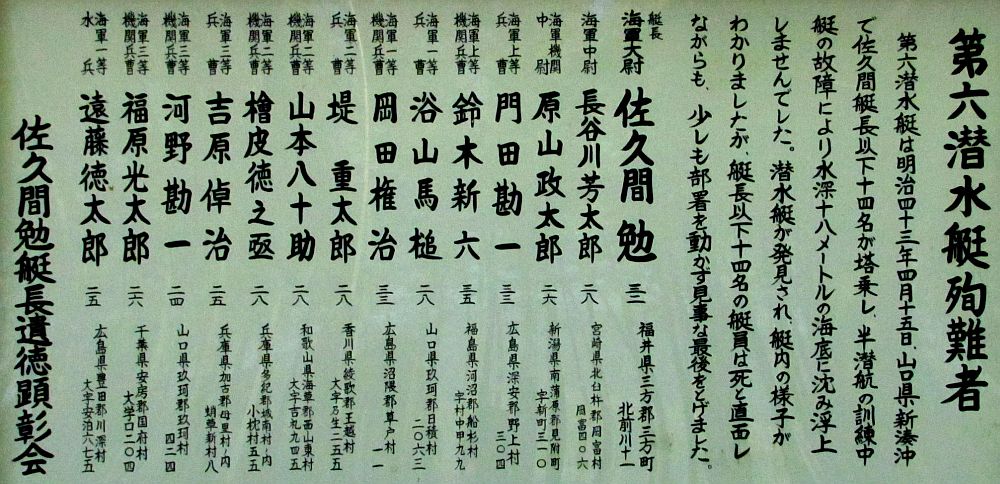 第六潜水艇殉難者
第六潜水艇は明治四十三年四月十五日、山口県新湊沖
で佐久間艇長以下十四名が塔乗し、半潜航の訓練中
艇の故障により水深十八メートルの海底に沈み浮上
しませんでした。潜水艇が発見され、艇内の様子が
わかりましたが、艇長以下十四名の艇員は死と直面し
ながらも、少しも部署を動かず見事な最後をとげました。
艇長 海軍大尉 佐久間勉 三二 福井県三方郡三方町 北前川十一
海軍中尉 長谷川芳太郎 二八 宮崎県北臼杵郡岡富村 岡富四〇六
海軍機関中尉 原山政太郎 二六 新潟県南蒲原郡見附町 字新町三一〇
海軍上等兵曹 門田勘一 三三 広島県深安郡野上村 三〇四
海軍上等機関兵曹 鈴木新六 三五 福島県河沼郡船杉村 字村中甲九九
海軍一等兵曹 浴山馬槌 二八 山口県玖珂郡日積村 二〇六三
海軍一等機関兵曹 岡田権治 三三 広島県沼隈郡草戸村 一一
海軍二等兵曹 堤重太郎 二八 香川県綾歌郡王越村 大字乃生二五五
海軍二等機関兵曹 山本八十助 二八 和歌山県海草郡西山東村 大字吉礼九四五
海軍二等機関兵曹 檜皮徳之亟 二八 兵庫県多紀郡城南村ノ内 小枕村五五
海軍三等兵曹 吉原倬治 二五 兵庫県加古郡母里村ノ内 蛸草新村八
海軍三等機関兵曹 河野勘一 二四 山口県玖珂郡玖珂村 四二四
海軍三等機関兵曹 福原光太郎 二六 千葉県安房郡国府村 大学口二〇四
海軍一等水兵 遠藤徳太郎 二五 広島県豊田郡川源村 大字安泊六七五
佐久間勉艇長遺徳顕彰会